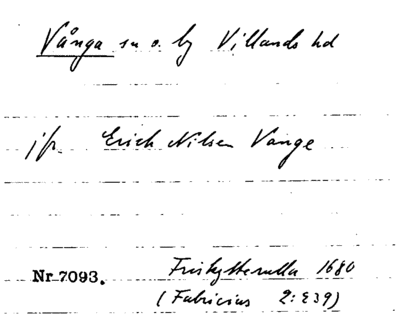 Vånga sn o. by Villands hd
jfr Erich Nilsen Vange
Nr 7093. Friskytterulla 1680
(Fabricius 2: 239)